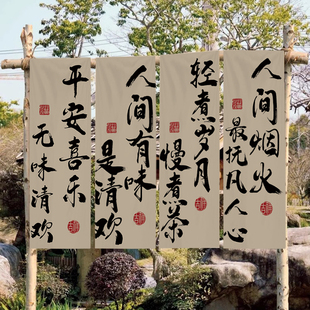 人间烟火
最抚凡人心
轻煮岁月
慢煮茶
人间有味
是清欢
平安喜乐
无味清欢